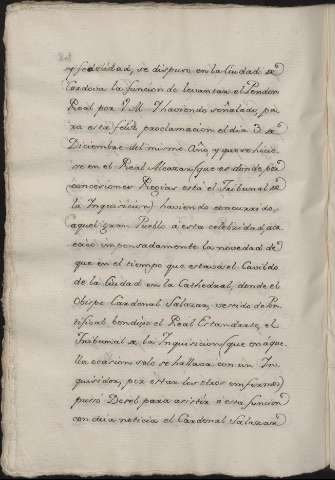 y fidelidad, se dispuso en la Ciudad de
Cordova la funcion de levantar el Pendon
Real por V. M. Y haviendo señalado pa
ra esta feliz proclamacion el dia 3 de
Diciembre del mismo Año, y que se hicie
se en el Real Alcazar (que es donde por
concesiones Regias está el Tribunal de
la Inquisicion) haviendo concurrido,
aquel gran Pueblo á esta celebridad, a
caeció impensadamente la novedad de
que en el tiempo que estava el Cavildo
de la Ciudad en la Cathedral, donde el
Obispo Cardenal Salazar, vestido de Pon
tifical bendijo el Real Estandarte, el
Tribunal de la Inquisicion (que en aque
lla ocasion solo se hallava con un In
quisidor, por estar los otros enfermos)
puso Dosel para asistir á esta funcion
con cuia noticia el Cardenal Salazar